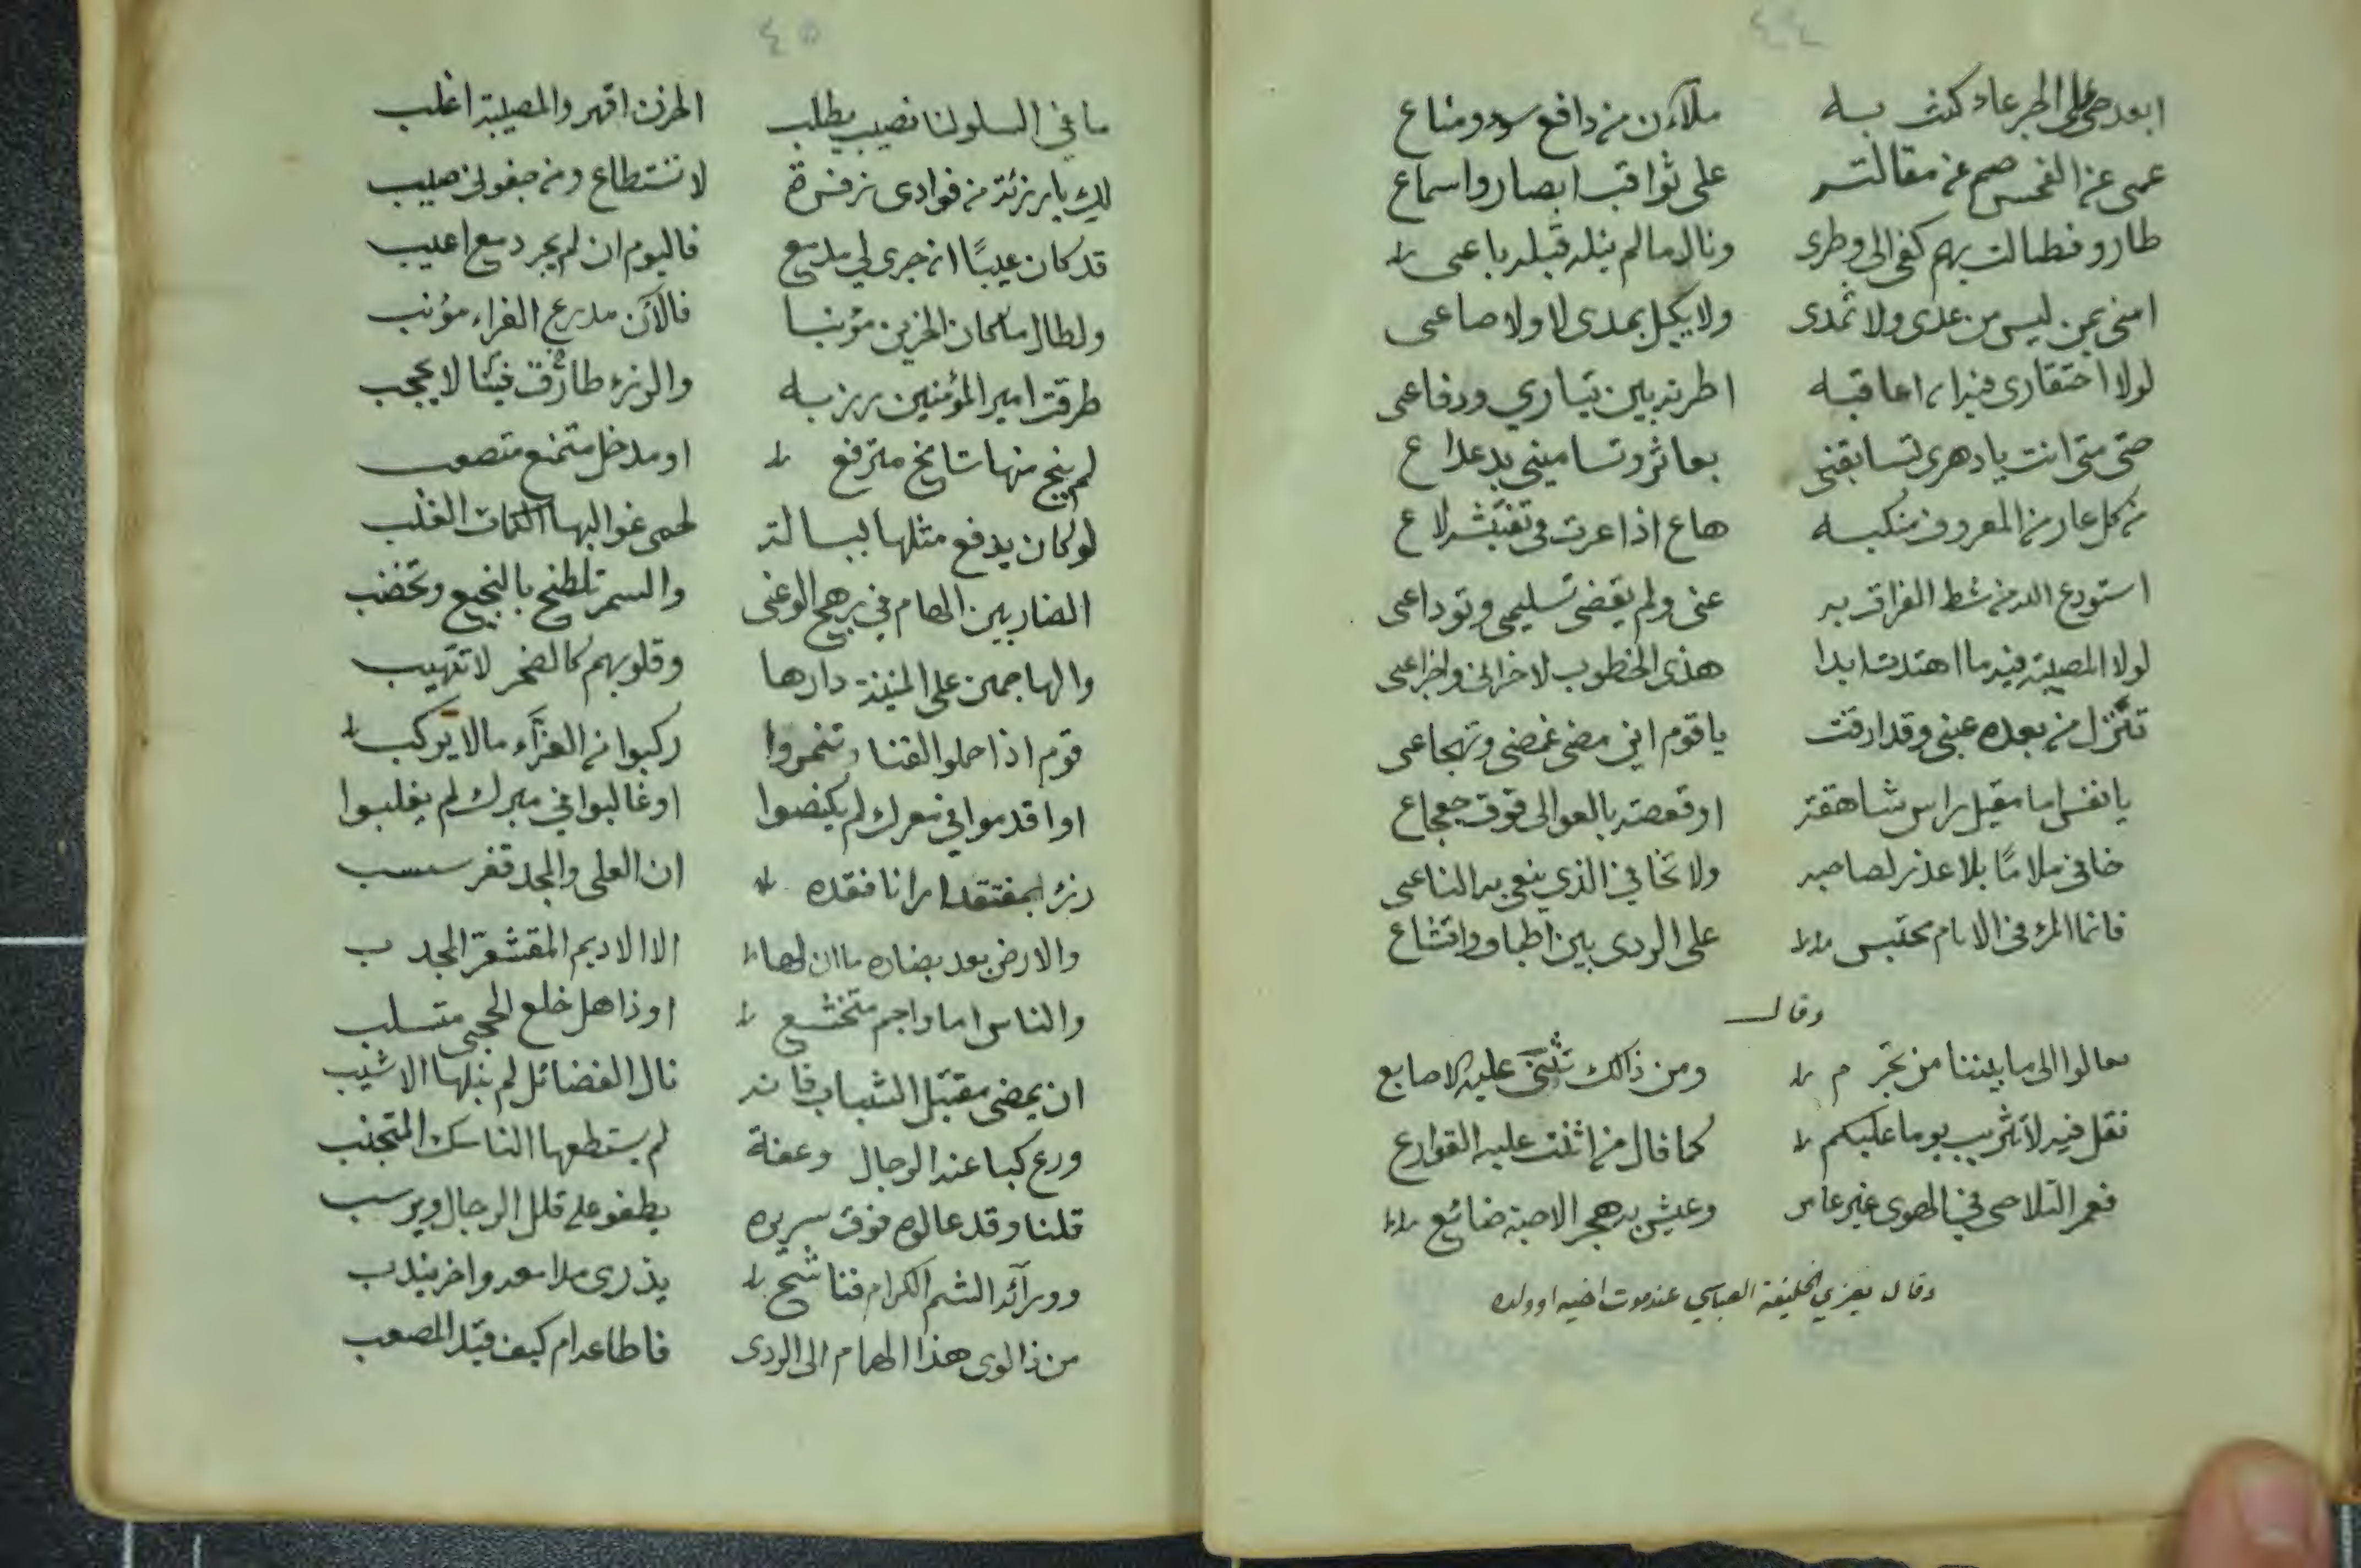 ٤٤
ابعد حي على الجرعاء كنت به ملآن من دافع سوء ومناع
عمى عن الفحش صم عن مقالته على ثواقب ابصار واسماع
طارو فطالت بهم كفي الى وطرى ونال ما لم ينله قبله باعى
امنى بمن ليس من عدى ولا ثمدى ولا يكيل بمدى لا ولا صاعى
لولا احتقارى فيزا اعاقبه اطرته بين تيارى ودفاعى
حتى متى انت يا دهرى تسابقنى بعاثر وتسامينى بدعداع
من كل عار من المعروف منكبه هاع اذا عرت في تفتيشه لاع
استودع الله من شط الفراق به عنى ولم يقضى تسليمى وتوداعى
لولا المصيبة فيه ما اهتدت ابدا هذى الخطوب لاحزانى واجزاعى
تنزل من بعده عينى وقد ارقت يا قوم اين مضى غمضى وتهجاعى
يا نفس اما مقيل راس شاهقة او قعصة بالعوالى فوق جعجاع
خافى ملاما بلا عذر لصاحبه ولا تخافى الذي ينعى به الناعى
فانما المرء فى الايام محتبس على الردى بين اطباق وانشاع
وقال
تعالوا الى ما بيننا من تجرم ومن ذاك تثنى عليه الاصابع
نقل فيه لا تثريب يوما عليكم كما قال من اثنت عليه القوارع
فعمر التلاحى في الهوى غير عامر وعيش به هجر الاحبة ضائع
وقال يعزي الخليفة العباسي عند موت اخيه او ولده
٤٥
ما في السلو لنا نصيب يطلب الحزن اقهر والمصيبة اغلب
لك يا رزئة من فوادى زفرة لا تستطاع ومن جفونى صيب
قد كان عيبًا ان جرى لي مدمع فاليوم ان لم يجر دمع اعيب
ولطال ما كان الحزين مؤنبا فالآن مدرع العزاء مؤنب
طرقت امير المؤمنين رزية والرزء طارق فيئا لا يحجب
لم ينج منها شامخ مترفع او مدخل متمنع متصعب
لو كان يدفع مثلها ببسالة لحمى غواليها الكماة الغلب
الضاربين الهام في رهج الوغى والسمر تلطخ بالنجيع وتخضب
والهاجمين على المنية دارها وقلوبهم كالصخر لا تتهيب
قوم اذا حملوا القنا وتنمروا ركبوا من العزاء مالا يركب
او اقدموا في معرك لم ينكصوا او غالبوا في مبرك لم يغلبوا
رزء بمفتقد ارانا فقده ان العلى والمجد قفر سبسب
والارض بعد بضاده ما ان لها الا الاديم المقشعر المجدب
والناس اما واجم متخشع او ذاهل خلع الحجى متسلب
ان يمضى مقتبل الشباب فانه نال الفضائل لم ينلها الاشيب
ورع كبا عند الرجال وعفة لم يستطعها الناسك المتجنب
قلنا وقد عالوه فوق سريره يطفو على قلل الرجال ويرسب
وورآئه الشم الكرام فناشج يذرى مدامعه واخر يندب
من ذا لوى هذا الهمام الى الردى فاطاعه ام كيف قيد المصعب